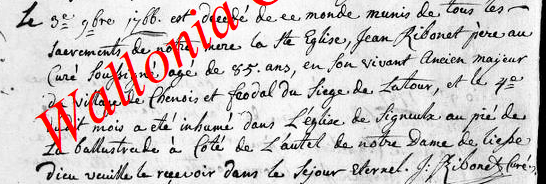 Le 3e 9bre 1766. est décédé de ce monde munis de tous les
sacrements de notre mere la Ste Eglise, Jean Ribonet pere au
Curé soussigné, agé de 85 ans, en son vivant Ancien majeur
du village de Chenois et feodal du Siege de Latour, et le 4e
dudit mois a été inhumé dans L'église de Signeulx au pié de
La ballustrade à Coté de L'autel de notre Dame de liesse
dieu veuille le reçevoir dans le Sejour eternel. J: Ribonet Curé.
Wallonia